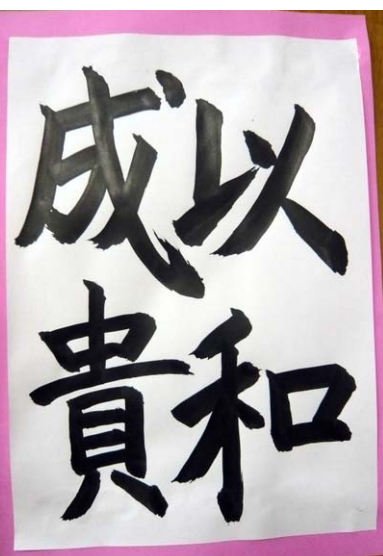 以和
成貴